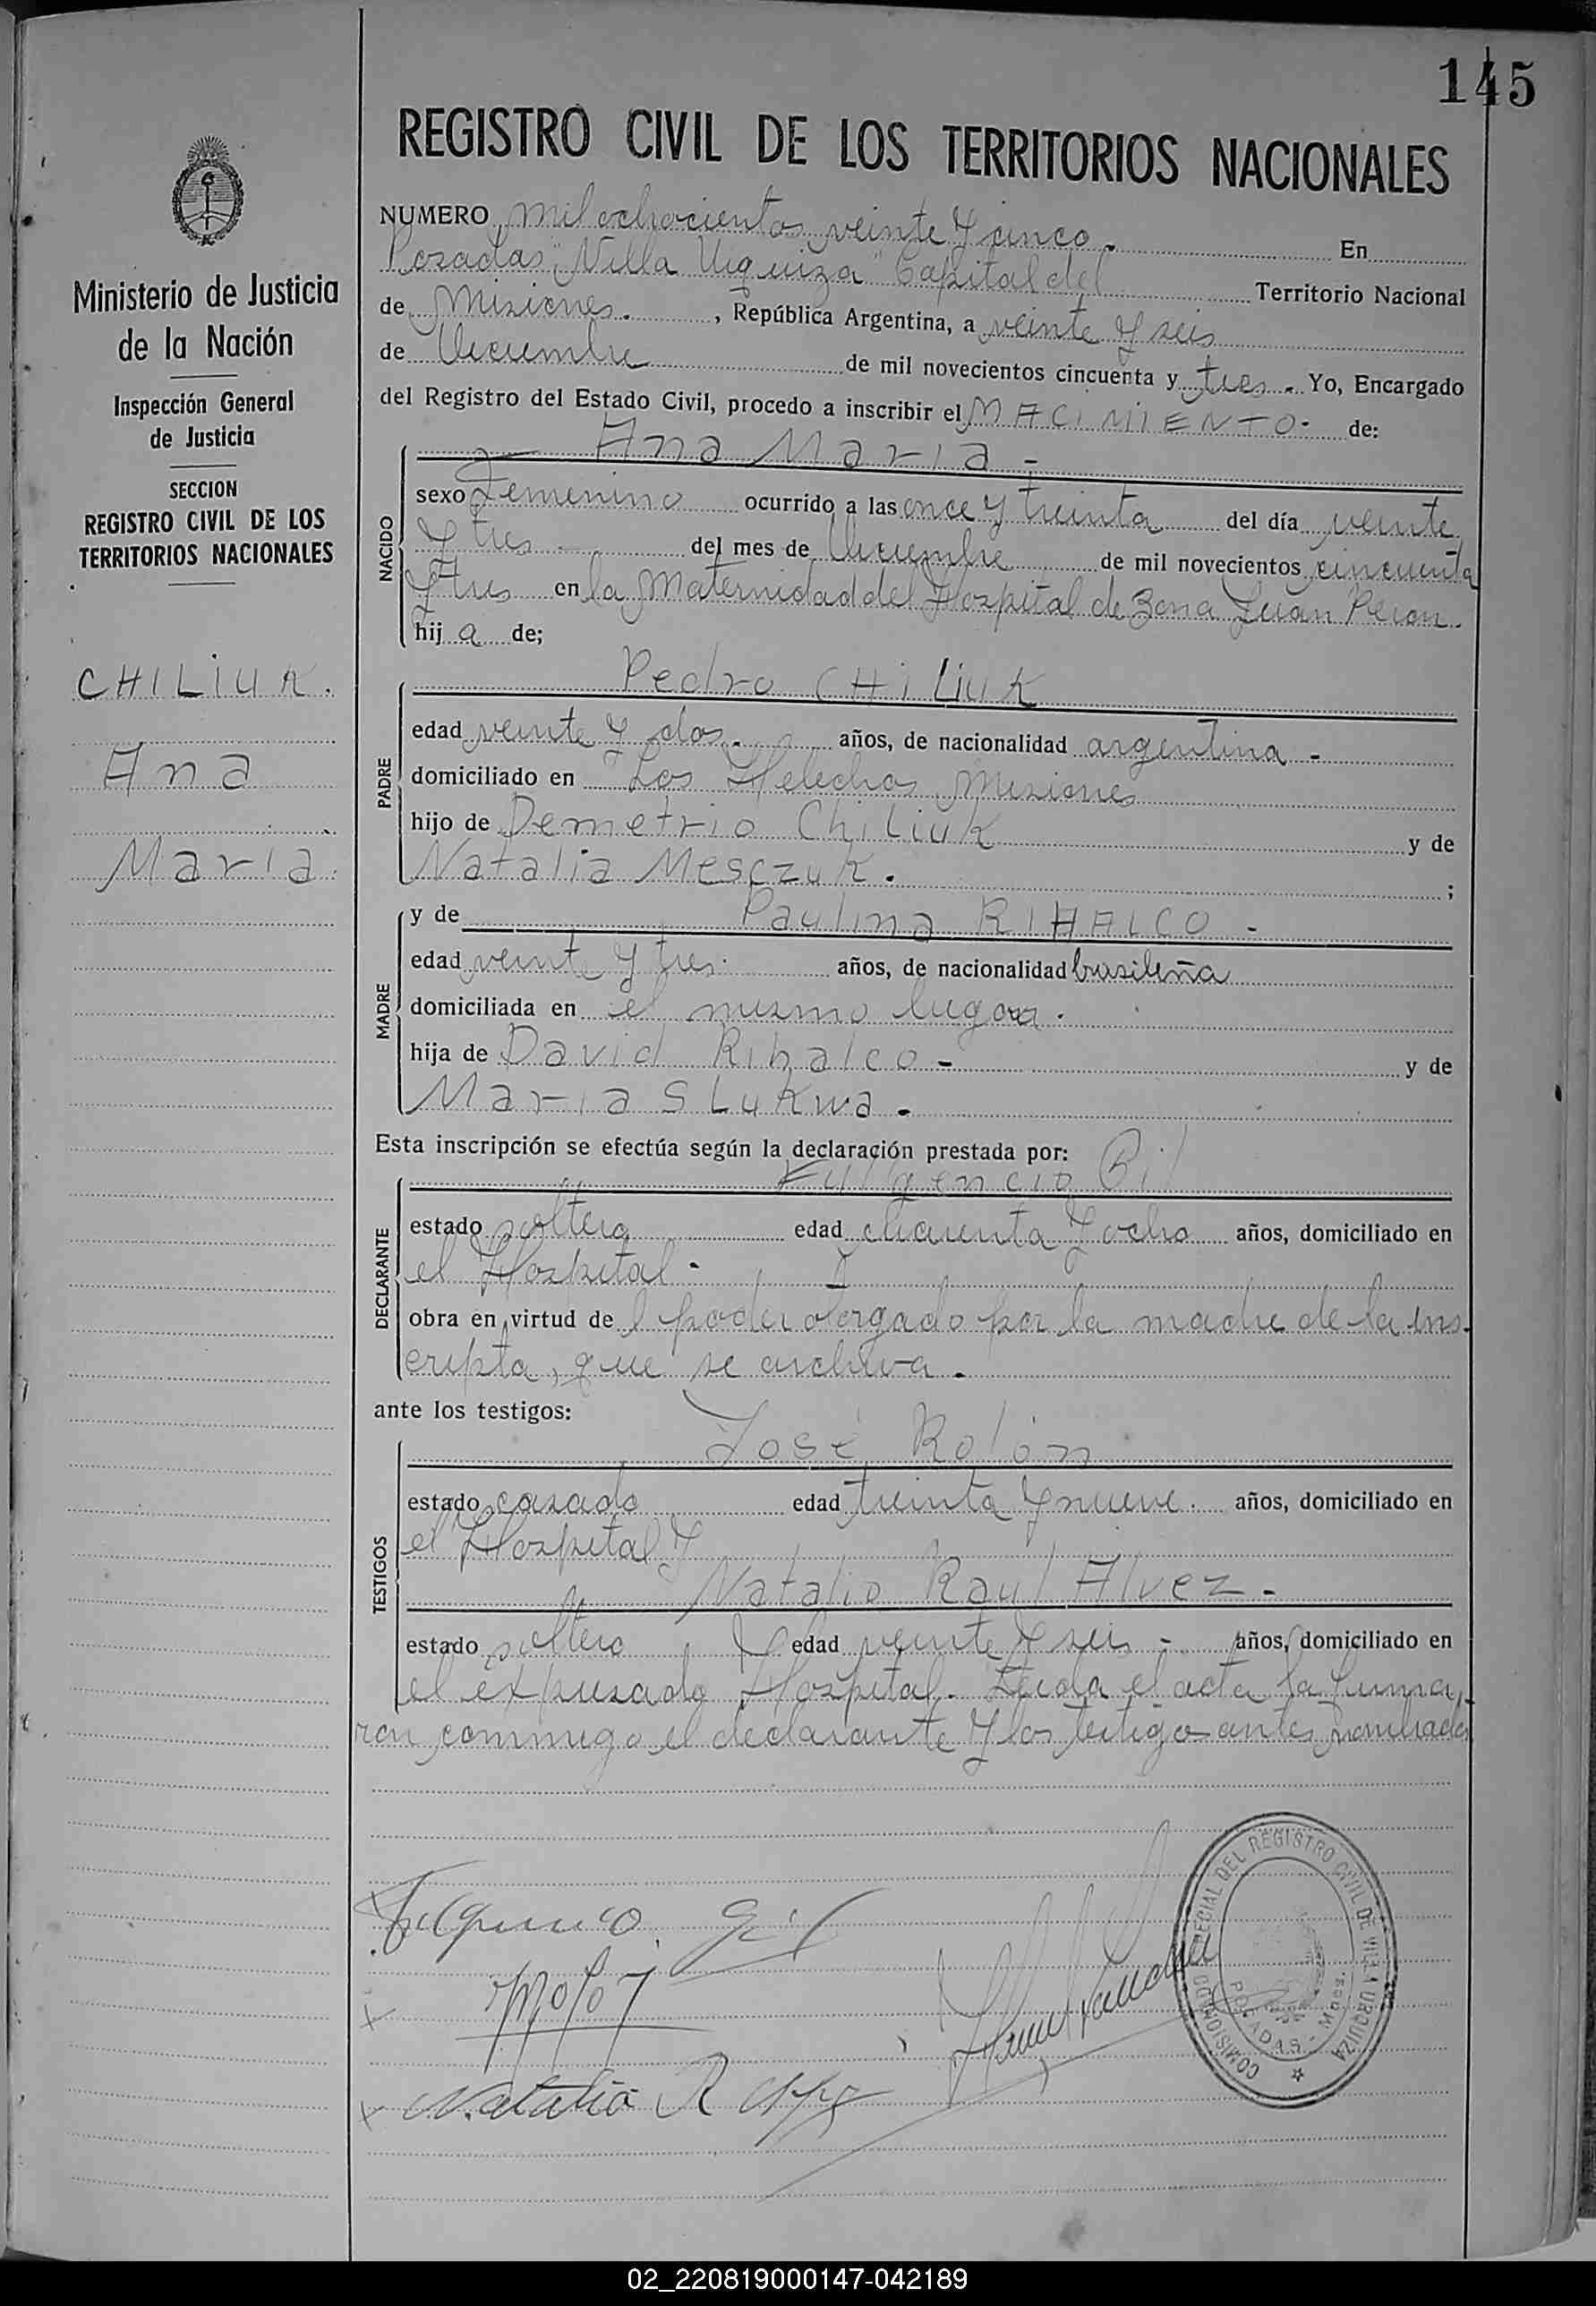 145
REGISTRO CIVIL DE LOS TERRITORIOS NACIONALES
Ministerio de Justicia
de la Nación
Inspección General
de Justicia
SECCION
REGISTRO CIVIL DE LOS
TERRITORIOS NACIONALES
CHILIUK.
Ana
María.
NUMERO mil ochocientos veinte y cinco. En
Posadas "Villa Urquiza" Capital del Territorio Nacional
de Misiones. , República Argentina, a veinte y seis
de Diciembre de mil novecientos cincuenta y tres. Yo, Encargado
del Registro del Estado Civil, procedo a inscribir el NACIMIENTO- de:
Ana María -
NACIDO
sexo Femenino ocurrido a las once y treinta del día veinte
y tres - del mes de Diciembre de mil novecientos cincuenta
y tres en la Maternidad del Hospital de Zona Juan Peron.
hij a de;
Pedro CHILIUK
PADRE
edad veinte y dos. años, de nacionalidad argentina -
domiciliado en Los Helechos Misiones
hijo de Demetrio Chiliuk y de
Natalia Mesczuk. ;
y de Paulina RIHALCO -
MADRE
edad veinte y tres. años, de nacionalidad brasileña
domiciliada en el mismo lugar.
hija de David Rihalco - y de
María Slukwa.
Esta inscripción se efectúa según la declaración prestada por:
Fulgencio Gil
DECLARANTE
estado soltero edad cuarenta y ocho años, domiciliado en
el Hospital -
obra en virtud de l poder otorgado por la madre de la ins-
cripta, que se archiva.
ante los testigos:
José Rolón
TESTIGOS
estado casado edad treinta y nueve. años, domiciliado en
el Hospital y
Natalio Raul Alvez -
estado soltero edad veinte y seis - años, domiciliado en
el expresado Hospital. Leida el acta la firma-
ron conmigo el declarante y los testigos antes nombrados
Fulgencio Gil
Natalio R
COMISIONADO ESPECIAL DEL REGISTRO CIVIL DE VILLA URQUIZA
POSADAS - Mnes.
02_220819000147-042189